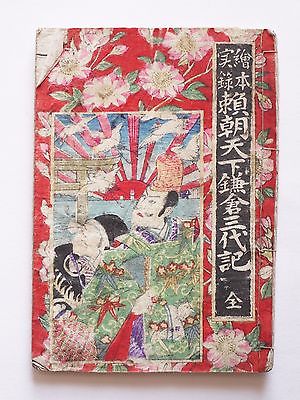 繪本
実録
頼朝天下鎌倉三代記
全